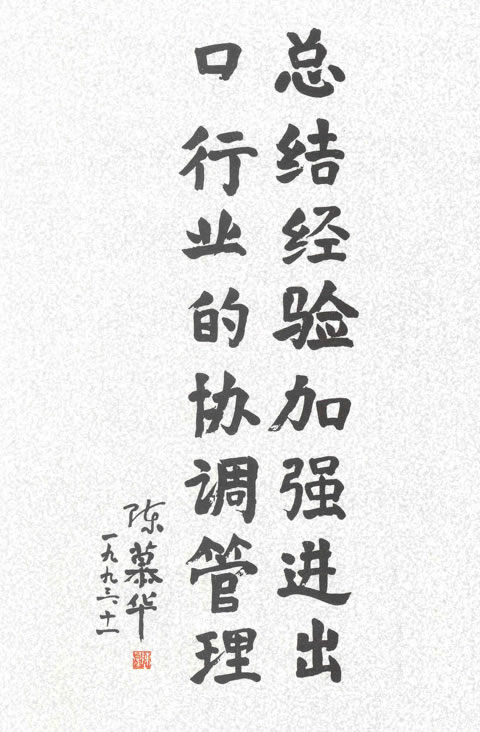 总结经验加强进出
口行业的协调管理
陈慕华
一九九三、十一